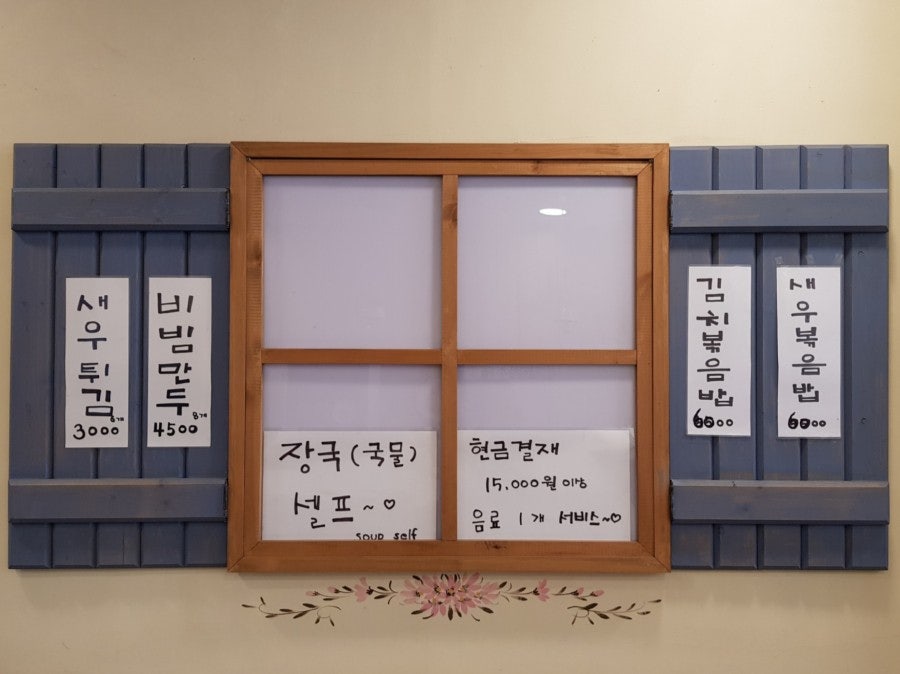 새우튀김
3000
비빔만두
8개
4500
장국(국물)
셀프~♡
soup self
현금결재
15,000원 이상
음료 1개 서비스~♡
김치볶음밥
6000
새우볶음밥
6000